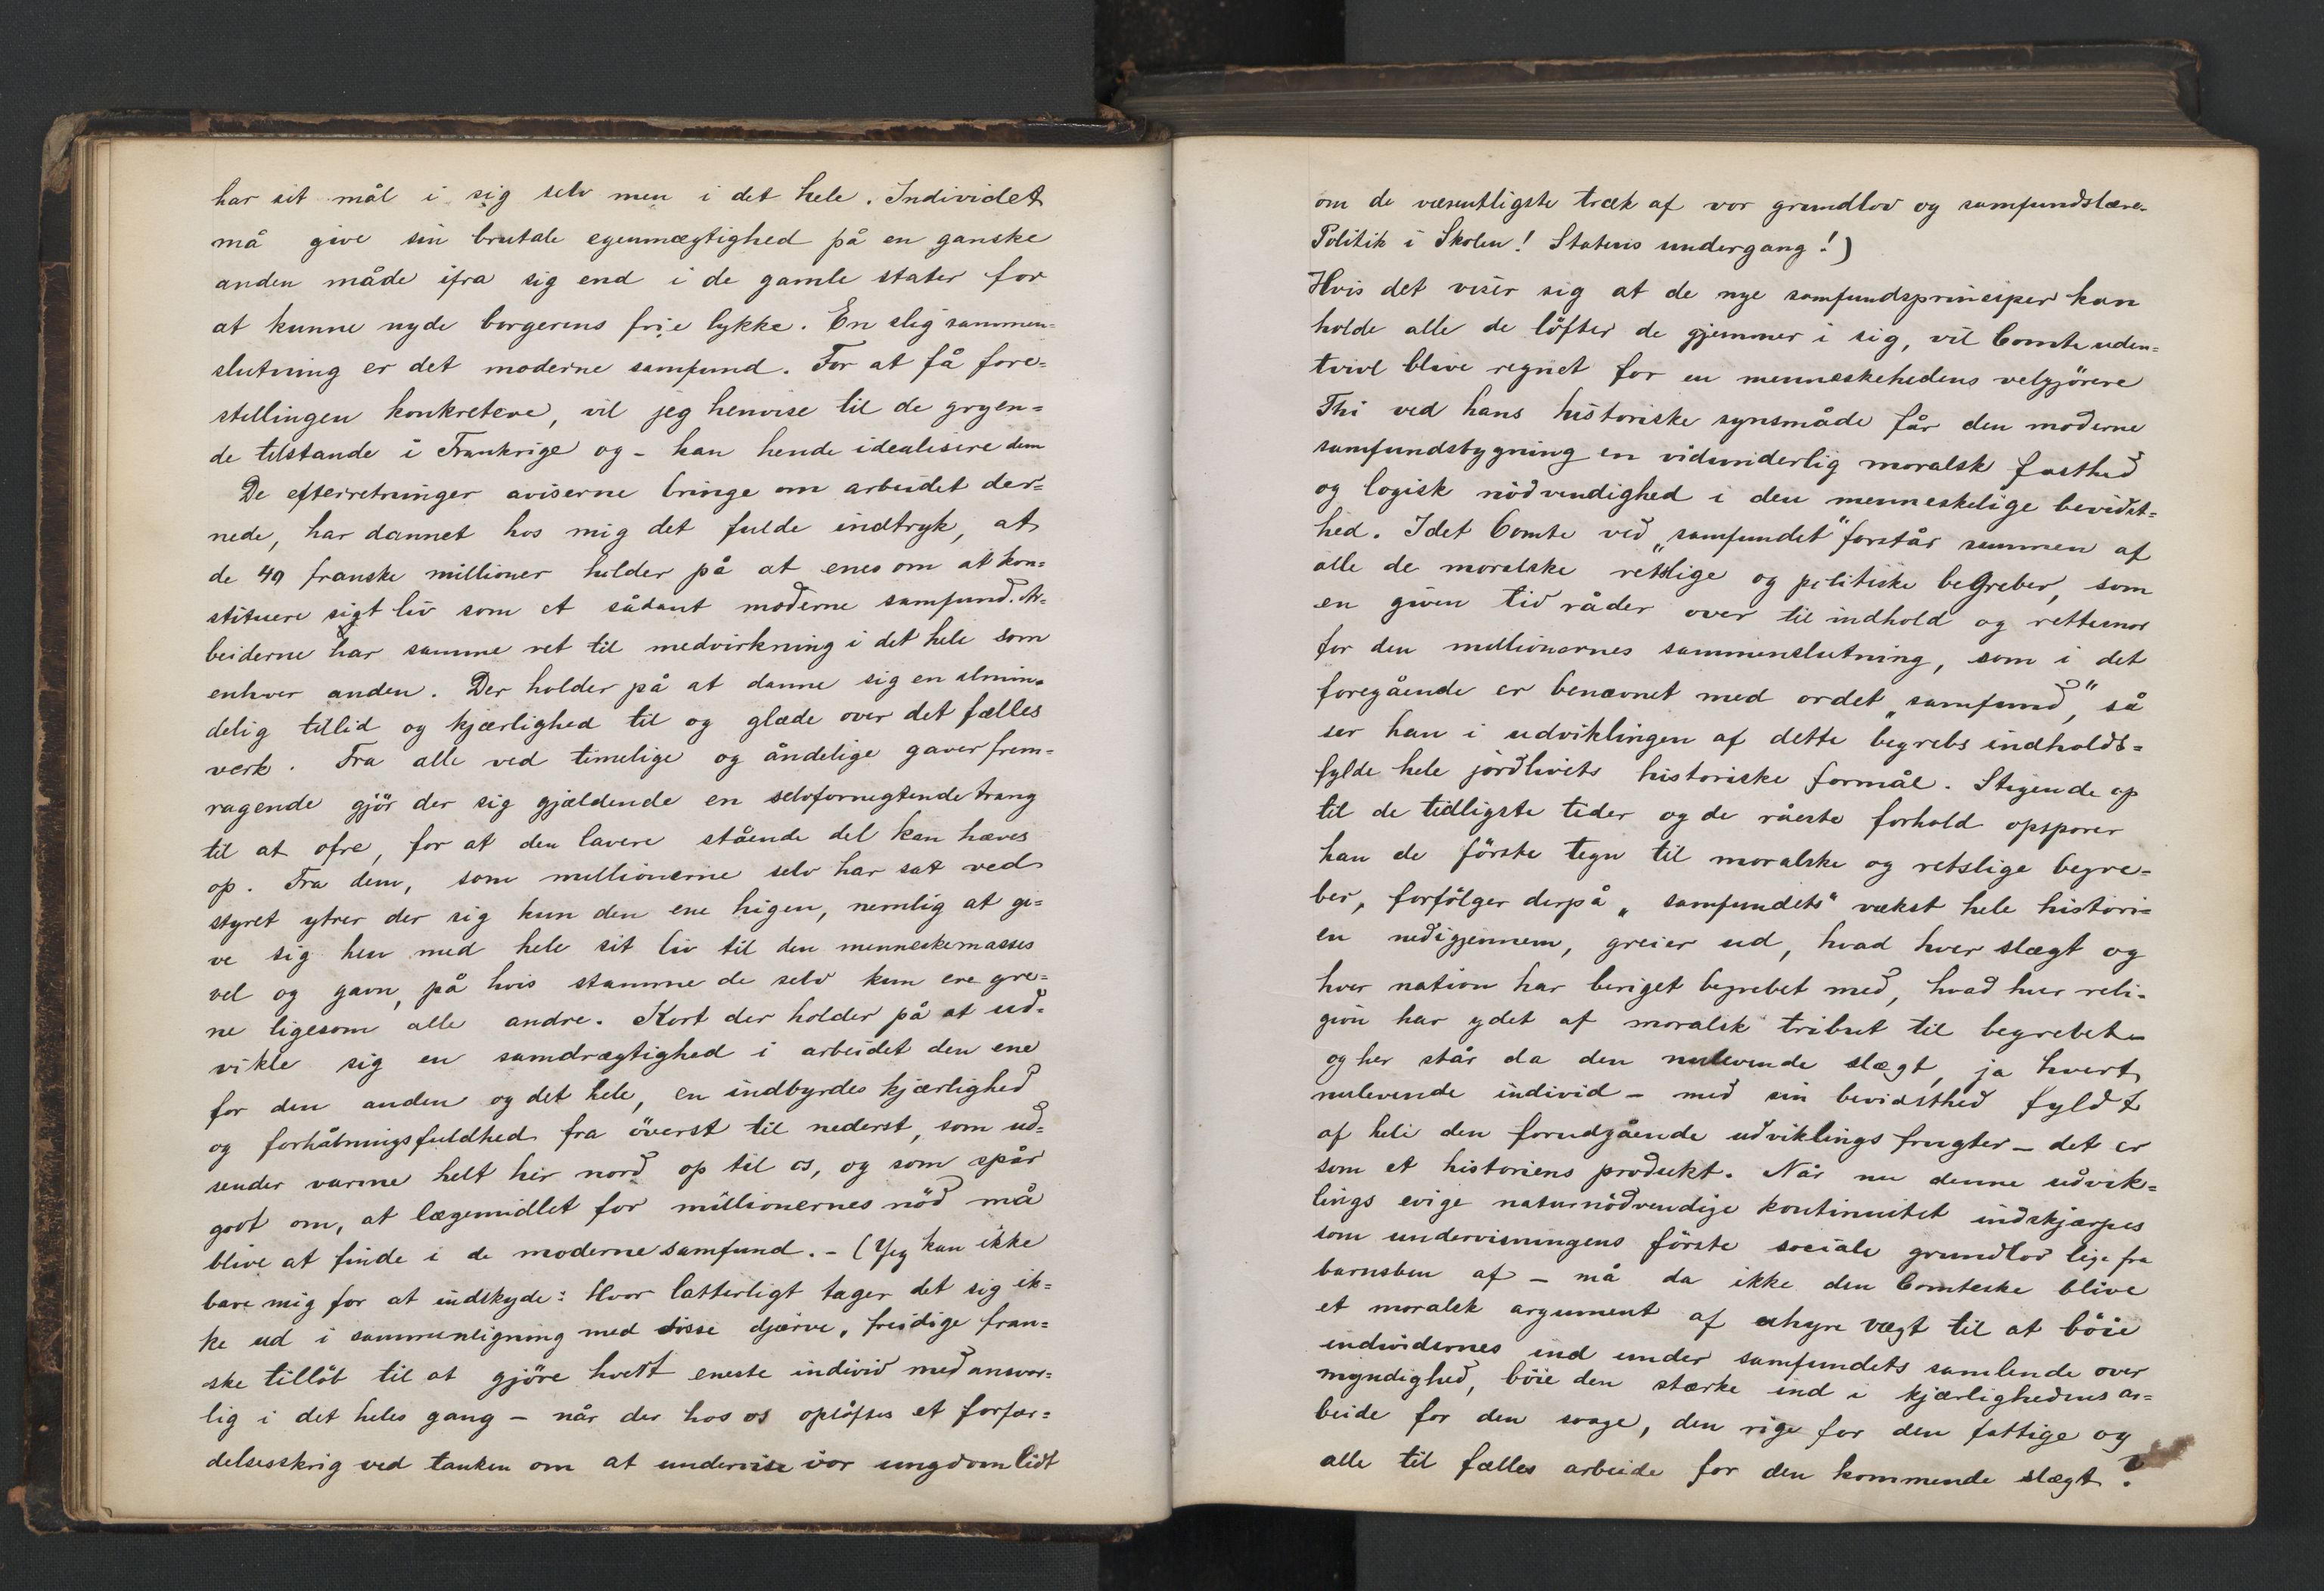 har sit mål i sig selv men i det hele. Individet
må give sin brutale egenmægtighed på en ganske
anden måde ifra sig end i de gamle stater for
at kunne nyde borgerens frie lykke. En slig sammen=
slutning er det moderne samfund. For at få fore=
stillingen konkretere, vil jeg henvise til de gryen=
de tilstande i Frankrige og – kan hende idealisere dem
De efterretninger aviserne bringe om arbeidet der=
nede, har dannet hos mig det fulde indtryk, at
de 40 franske millioner holder på at enes om at kon=
stituere sigt liv som et sådant moderne samfund. Ar=
beiderne har samme ret til medvirkning i det hele som
enhver anden. Der holder på at danne sig en almin=
delig tillid og kjærlighed til og glæde over det fælles
værk. Fra alle ved timelige og åndelige gaver frem=
ragende gjör der sig gjældende en selvfornegtende trang
til at ofre, for at den lavere stående del kan hæves
op. Fra dem, som millionerne selv har sat ved
styret ytrer der sig kun den ene higen, nemlig at gi=
ve sig hen med hele sit liv til den menneskemasses
vel og gavn, på hvis stamme de selv kun ere gre=
ne ligesom alle andre. Kort der holder på at ud=
vikle sig en samdrægtighed i arbeidet den ene
for den anden og det hele, en indbyrdes kjærlighed
og forhåbningsfuldhed fra överst til nederst, som ud=
sender varme helt her nord op til os, og som spår
godt om, at lægemidlet for millionernes nöd må
blive at finde i de moderne samfund. – (Jeg kan ikke
bare mig for at indskyde: Hvor latterligt tager det sig ik=
ke ud i sammenligning med disse djærve, freidige fran=
ske tillöb til at gjöre hvert eneste individ med ansvar=
lig i det heles gang – når der hos os oplöftes et forfær=
delsesskrig ved tanken om at undervise vor ungdom lidt
om de væsentligste træk af vor grundlov og samfundslære.
Politik i Skolen! Statens undergang!)
Hvis det viser sig at de nye samfundsprinciper kan
holde alle de löfter de gjemmer i sig, vil Comte uden=
tvivl blive regnet for en menneskehedens velgjörere
Thi ved hans historiske synsmåde får den moderne
samfundsbygning en vidunderlig moralsk fasthed
og logisk nödvendighed i den menneskelige bevidst=
hed. Idet Comte ved „samfundet“ forstår summen af
alle de moralske retslige og politiske begreber, som
en given tid råder over til indhold og rettesnor
for den millionernes sammenslutning, som i det
foregående er benævnet med ordet „samfund“, så
ser han i udviklingen af dette begrebs indholds=
fylde hele jordlivets historiske formål. Stigende op
til de tidligste tider og de råeste forhold opsporer
han de förste tegn til moralske og retslige begre=
ber, forfölger derpå „samfundets“ vækst hele histori=
en nedigjennem, greier ud, hvad hver slægt og
hver nation har beriget begrebet med, hvad hver reli=
gion har ydet af moralsk tribut til begrebet –
og her står da den nulevende slægt, ja hvert
nulevende individ – med sin bevidsthed fyldt
af hele den forudgående udviklings frugter – det er
som et historiens produkt. Når nu denne udvik=
lings evige naturnödvendige kontinuitet indskjærpes
som undervisningens förste sociale grundlov lige fra
barnsben af – må da ikke den Comteske blive
et moralsk argument af uhyre vægt til at böie
individernes ind under samfundets samlende over
myndighed, böie den stærke ind i kjærlighedens ar=
beide for den svage, den rige for den fattige og
alle til fælles arbeide for den kommende slægt?